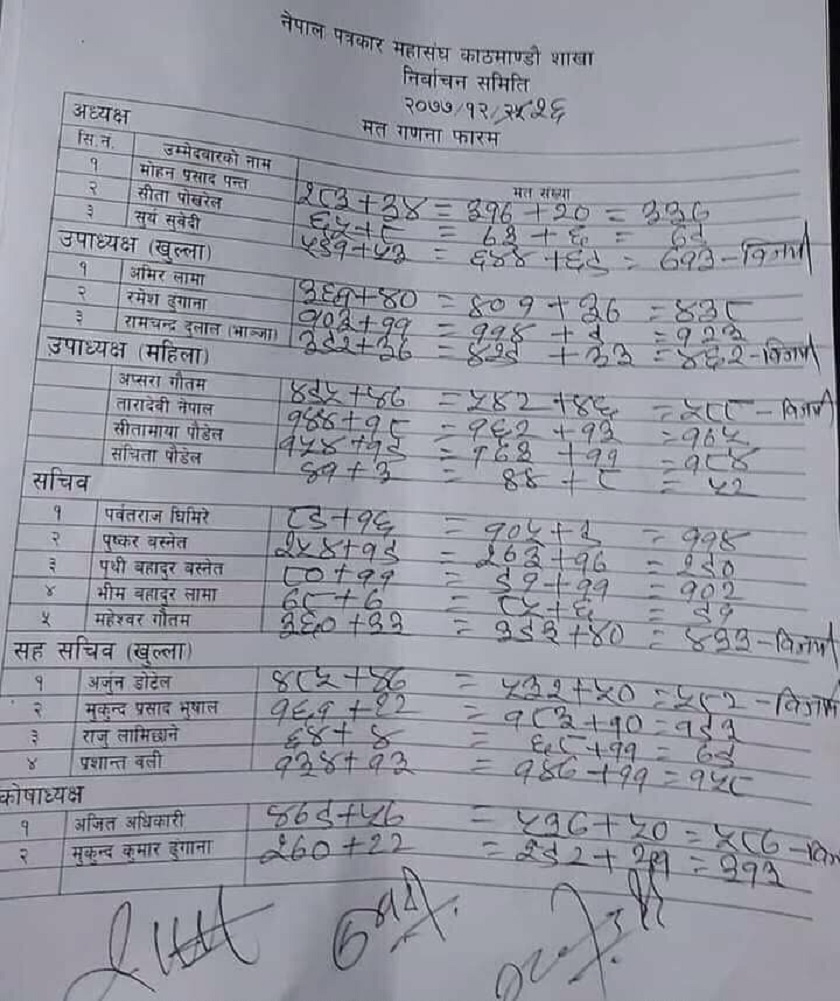 नेपाल पत्रकार महासंघ काठमाण्डौ शाखा
निर्वाचन समिति
२०७७/१२/२६
मत गणना फारम
अध्यक्ष
सि.नं. उम्मेदवारको नाम मत संख्या
१ मोहन प्रसाद पन्त २८३+३४ = ३१७+२० = ३३७
२ सीता पोखरेल ६५+८ = ७३+६ = ७९
३ सुर्य सुवेदी ५९१+५३ = ६४४+६९ = ७१३ - विजयी
उपाध्यक्ष (खुल्ला)
१ अमिर लामा ३६१+४० = ४०१+३७ = ४३८
२ रमेश ढुंगाना १०३+११ = ११४+९ = १२३
३ रामचन्द्र दुलाल (भाञ्जा) ३९२+३७ = ४२९+३३ = ४६२ - विजयी
उपाध्यक्ष (महिला)
अप्सरा गौतम ४९५+४७ = ५४२+४६ = ५८८ - विजयी
तारादेवी नेपाल १४४+१८ = १६२+१३ = १७५
सीतामाया पौडेल १५४+१९ = १७३+११ = १८४
संचिता पौडेल ४१+३ = ४४+८ = ५२
सचिव
१ पर्वतराज घिमिरे ८९+१६ = १०५+९ = ११४
२ पुष्कर बस्नेत २५४+१९ = २७३+१७ = २९०
३ पृथी बहादुर बस्नेत ८०+११ = ९१+११ = १०२
४ भीम बहादुर लामा ७८+७ = ८५+६ = ९१
५ महेश्वर गौतम ३६०+३३ = ३९३+४० = ४३३ - विजयी
सह सचिव (खुल्ला)
१ अर्जुन डोटेल ४८५+४७ = ५३२+५० = ५८२ - विजयी
२ मुकुन्द प्रसाद भुषाल १६१+२२ = १८३+१० = १९३
३ राजु लामिछाने ६४+४ = ६८+११ = ७९
४ प्रशान्त वली १३४+१३ = १४७+११ = १५८
कोषाध्यक्ष
१ अजित अधिकारी ४७९+५७ = ५३७+५० = ५८७ - विज
२ मुकुन्द कुमार ढुंगाना २७०+२२ = २९२+२१ = ३१३